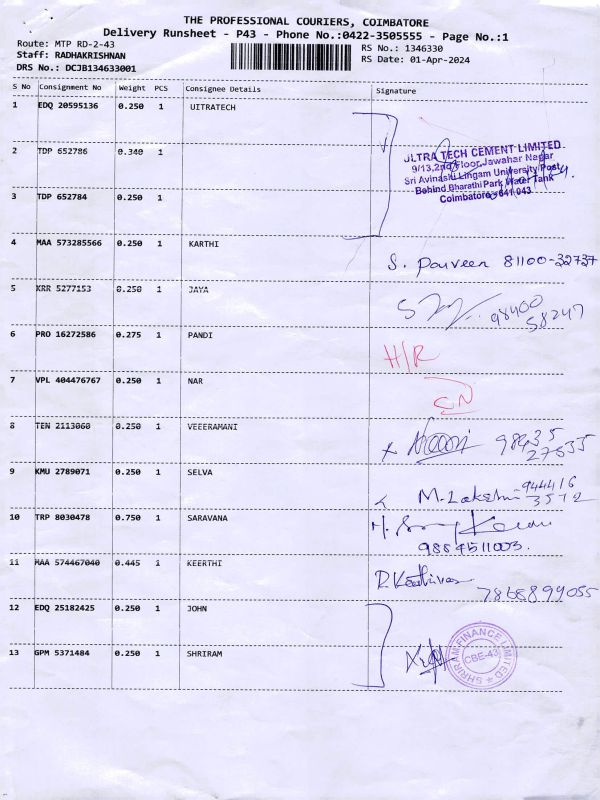 THE PROFESSIONAL COURIERS, COIMBATORE
Delivery Runsheet - P43 - Phone No.:0422-3505555 - Page No.:1
Route: MTP RD-2-43
Staff: RADHAKRISHNAN
DRS No.: DCJB134633001
RS No.: 1346330
RS Date: 01-Apr-2024
S No Consignment No Weight PCS Consignee Details Signature
1 EDQ 20595136 0.250 1 UITRATECH
2 TDP 652786 0.340 1
3 TDP 652784 0.250 1
ULTRA TECH CEMENT LIMITED
9/13, 2nd Floor, Jawahar Nagar
Sri Avinashi Lingam University Post
Behind Bharathi Park Water Tank
Coimbatore - 641 043
4 MAA 573285566 0.250 1 KARTHI S. Parveen 81100-32737
5 KRR 5277153 0.250 1 JAYA 98400
58247
6 PRO 16272586 0.275 1 PANDI H/R
7 VPL 404476767 0.250 1 NAR
8 TEN 2113060 0.250 1 VEEERAMANI
9 KMU 2789071 0.250 1 SELVA M. Lakshmi 944416
3512
10 TRP 8030478 0.750 1 SARAVANA
11 MAA 574467040 0.445 1 KEERTHI R. Keerthivas
12 EDQ 25182425 0.250 1 JOHN
13 GPM 5371484 0.250 1 SHRIRAM
SHRIRAM FINANCE LIMITED
CBE-43